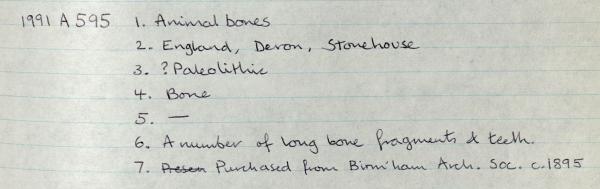 1991 A 595 1. Animal bones
2. England, Devon, Stonehouse
3. ? Paleolithic
4. Bone
5. —
6. A number of long bone fragments & teeth.
7. Presen Purchased from Birm'ham Arch. Soc. c.1895